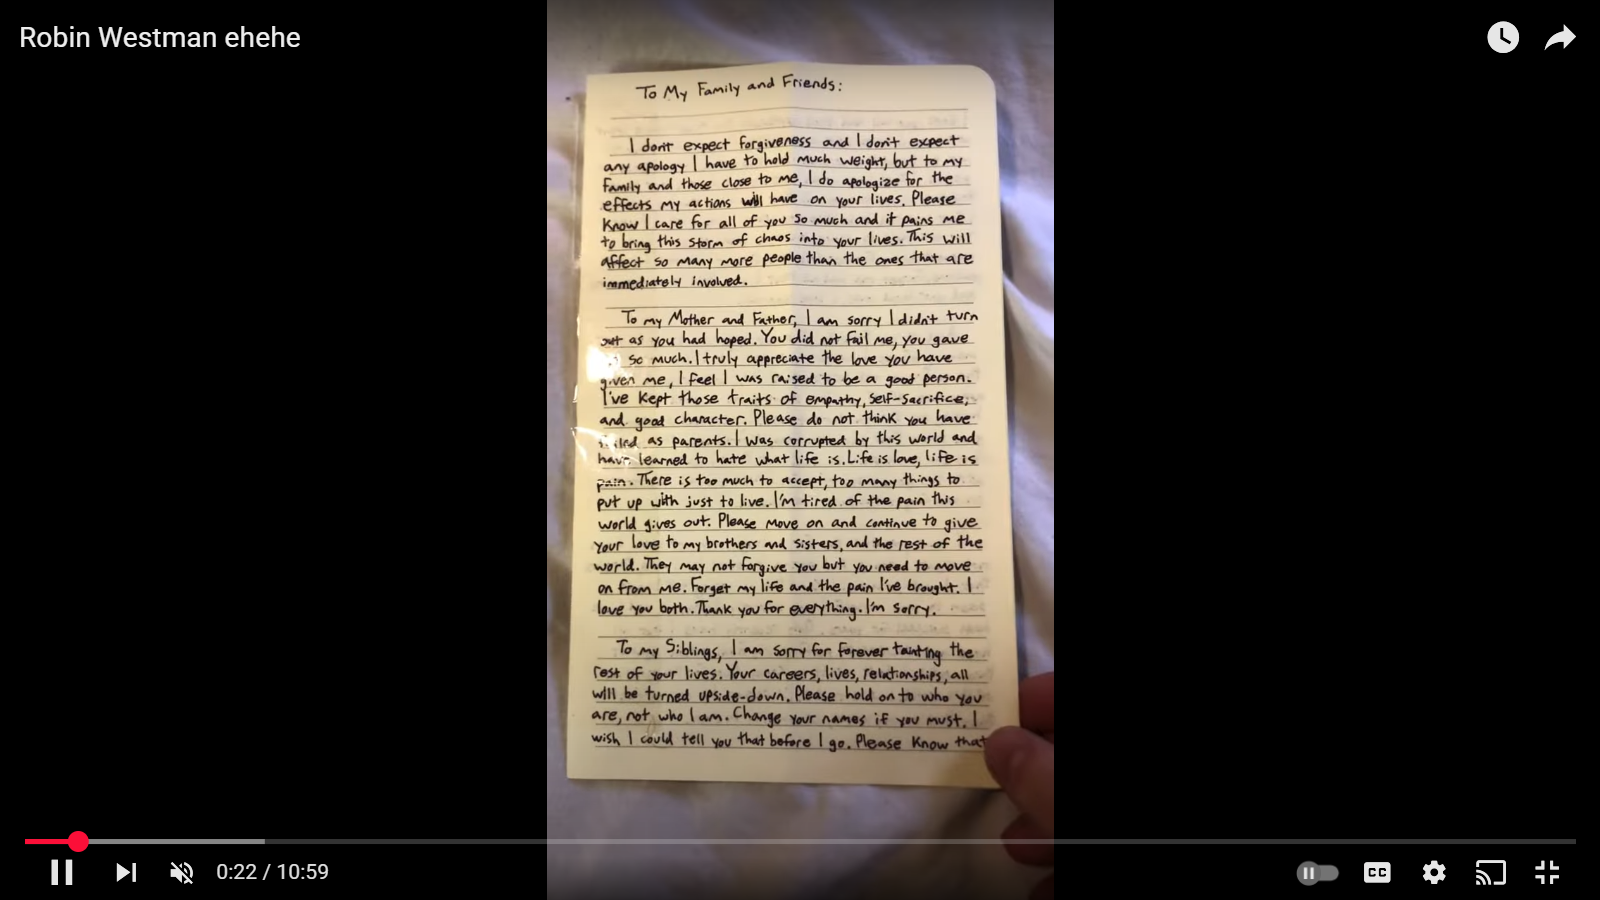 Robin Westman ehehe
To My Family and Friends:
I don't expect forgiveness and I don't expect
any apology I have to hold much weight, but to my
family and those close to me, I do apologize for the
effects my actions will have on your lives. Please
Know I care for all of you so much and it pains me
to bring this storm of chaos into your lives. This will
affect so many more people than the ones that are
immediately involved.
To my Mother and Father, I am sorry I didn't turn
out as you had hoped. You did not fail me, you gave
so much. I truly appreciate the love you have
given me, I feel I was raised to be a good person.
I've Kept those traits of empathy, self-sacrifice,
and good character. Please do not think you have
failed as parents. I was corrupted by this world and
have learned to hate what life is. Life is love, life is
pain. There is too much to accept, too many things to
put up with just to live. I'm tired of the pain this
world gives out. Please move on and continue to give
your love to my brothers and sisters, and the rest of the
world. They may not forgive you but you need to move
on from me. Forget my life and the pain I've brought. I
love you both. Thank you for everything. I'm sorry.
To my Siblings, I am sorry for forever tainting the
rest of your lives. Your careers, lives, relationships, all
will be turned upside-down. Please hold on to who you
are, not who I am. Change your names if you must. I
wish I could tell you that before I go. Please Know that
0:22 / 10:59
CC